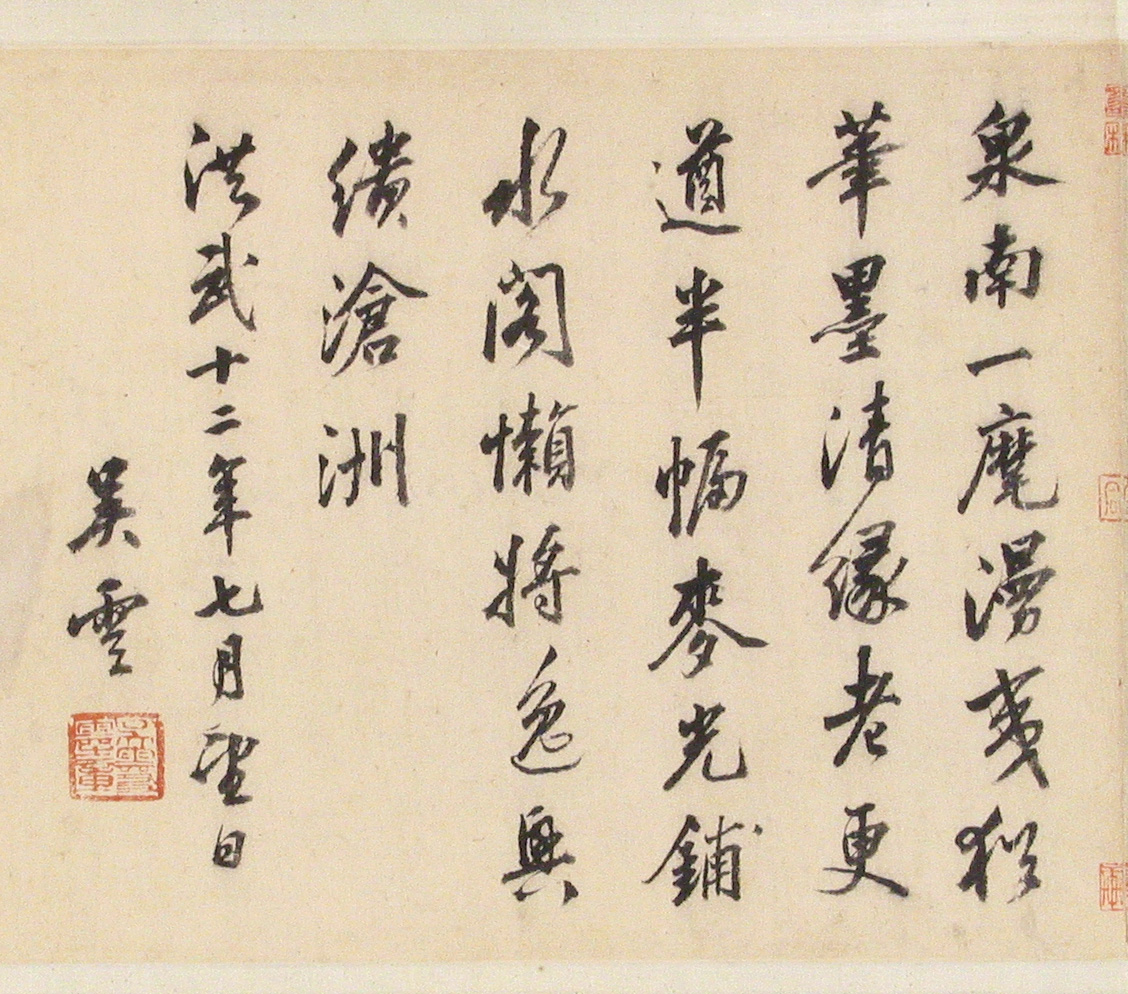 泉南一麾漫夷猶
筆墨清緣老更
遒半幅麥光鋪
水閣懶將逸興
繢滄洲
洪武十二年七月望日
吳雲